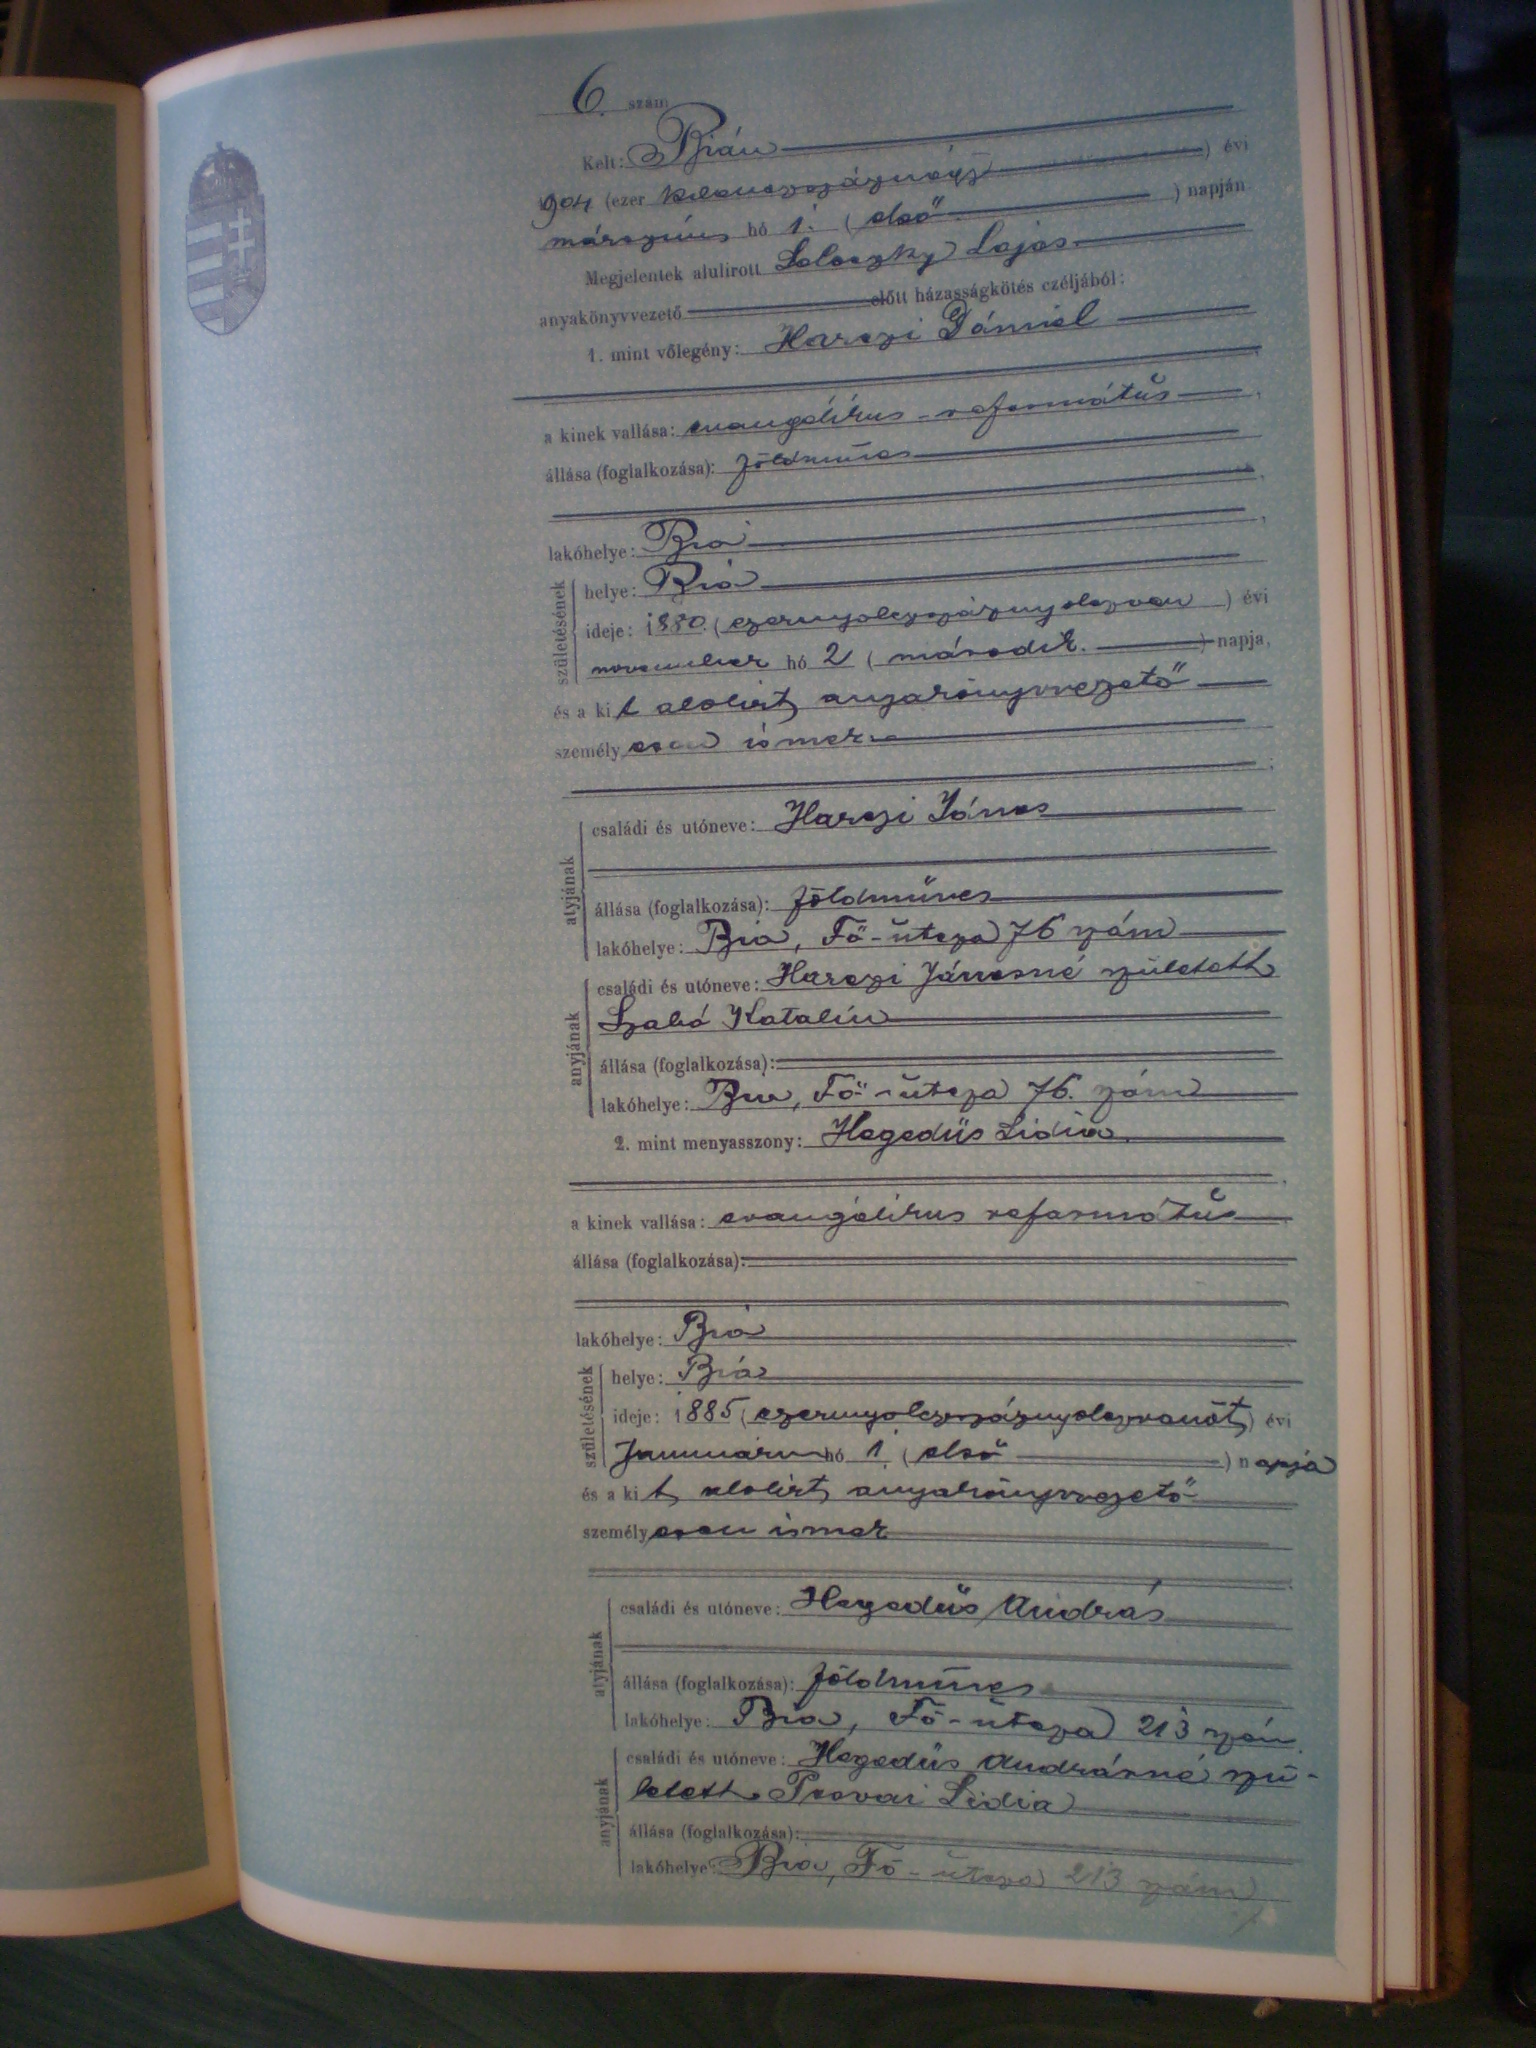 6. szám
Kelt: Bián
904 (ezer kilenczszáznégy) évi
márczius hó 1. (első) napján
Megjelentek alulirott Lajos
anyakönyvvezető előtt házasságkötés czéljából:
1. mint vőlegény: Harczi Dániel
a kinek vallása: evangélikus-református
állása (foglalkozása): földmüves
lakóhelye: Bia
születésének
helye: Bia
ideje: 1880. (ezernyolczszáznyolczvan) évi
november hó 2 (második.) napja,
és a kit alolirt anyakönyvvezető
személyesen ismer
atyjának
családi és utóneve: Harczi János
állása (foglalkozása): földmüves
lakóhelye: Bia, Fő-utcza 76 szám
anyjának
családi és utóneve: Harczi Jánosné született
Szabó Katalin
állása (foglalkozása):
lakóhelye: Bia, Fő-utcza 76. szám
2. mint menyasszony: Hegedüs Lidia
a kinek vallása: evangélikus református
állása (foglalkozása):
lakóhelye: Bia
születésének
helye: Bia
ideje: 1885 (ezernyolczszáznyolczvanöt) évi
Januuár hó 1 (első) napja
és a kit alolirt anyakönyvvezető
személyesen ismer
atyjának
családi és utóneve: Hegedüs András
állása (foglalkozása): földmüves
lakóhelye: Bia, Fő-utcza 213 szám
anyjának
családi és utóneve: Hegedüs Andrásné szü-
letett Lidia
állása (foglalkozása):
lakóhelye: Bia, Fő-utcza 213 szám